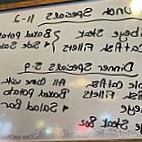 Lunch Specials 11-2
Ribeye Steak } Baked Potato
Catfish Fillets } + Side Salad
Dinner Specials 5-9
Catfish All Come with
Fillets Baked Potato
Ribeye + Salad Bar
Steak Bar